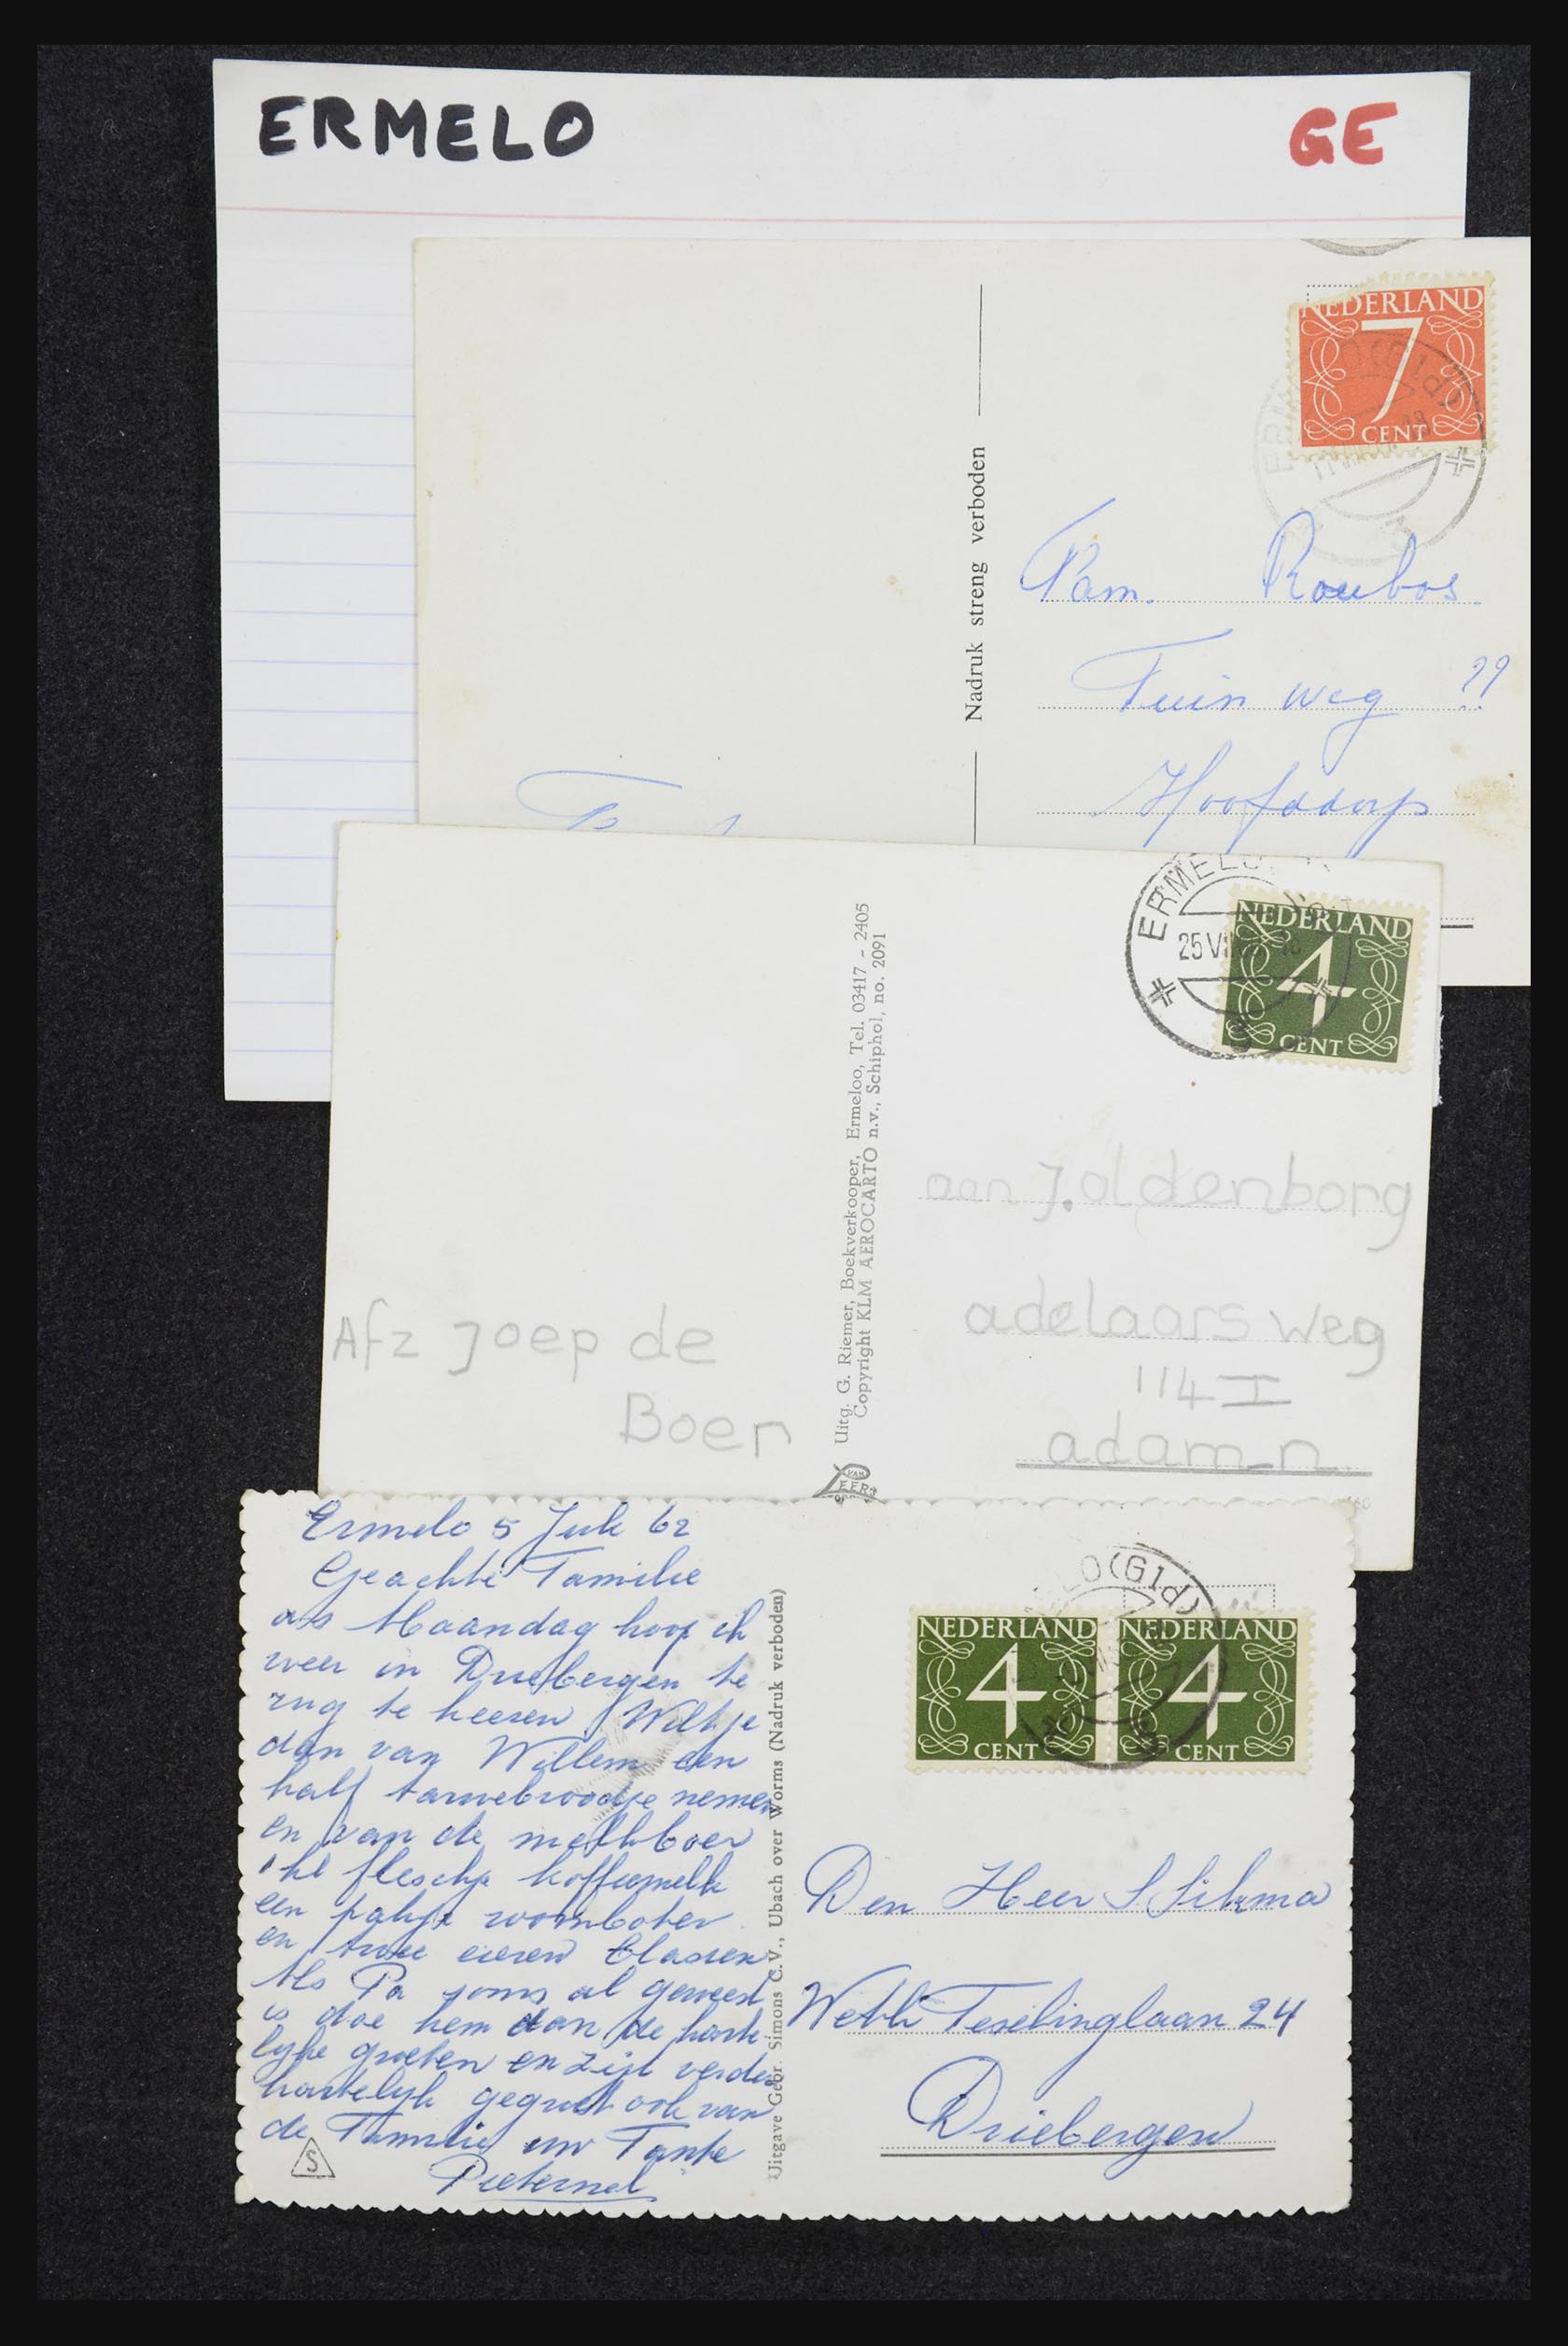 ERMELO
GE
NEDERLAND
7
CENT
ERMELO (Gld)
3
Nadruk streng verboden
Fam. Roubos.
Tuin weg ??
Hoofddorp
ERMELO
25 VI
3
NEDERLAND
4
CENT
Uitg. G. Riemer, Boekverkooper, Ermeloo, Tel. 03417 - 2405
Copyright KLM AEROCARTO n.v., Schiphol, no. 2091
VAN LEER
aan J. oldenborg
adelaars weg
114 I
adam-n.
Afz Joep de
Boer
Ermelo 5 Juli 62
Geachte Familie
a.s Maandag hoop ik
weer in Driebergen te
rug te keeren Wilt je
dan van Willem een
half tarwebroodje nemen
en van de melkboer
1 hl fleschje koffiemelk
een pakje roomboter
en twee eieren
Als Pa soms al geweest
is doe hem dan de harte
lyke groeten en zijt verder
hartelyk gegroet ook van
de Familie uw Tante
Pieternel
S
Uitgave Gebr. Simons C.V., Ubach over Worms (Nadruk verboden)
ELO (Gld)
NEDERLAND
4
CENT
NEDERLAND
4
CENT
Den Heer S Sikma
Weth Teselinglaan 24
Driebergen